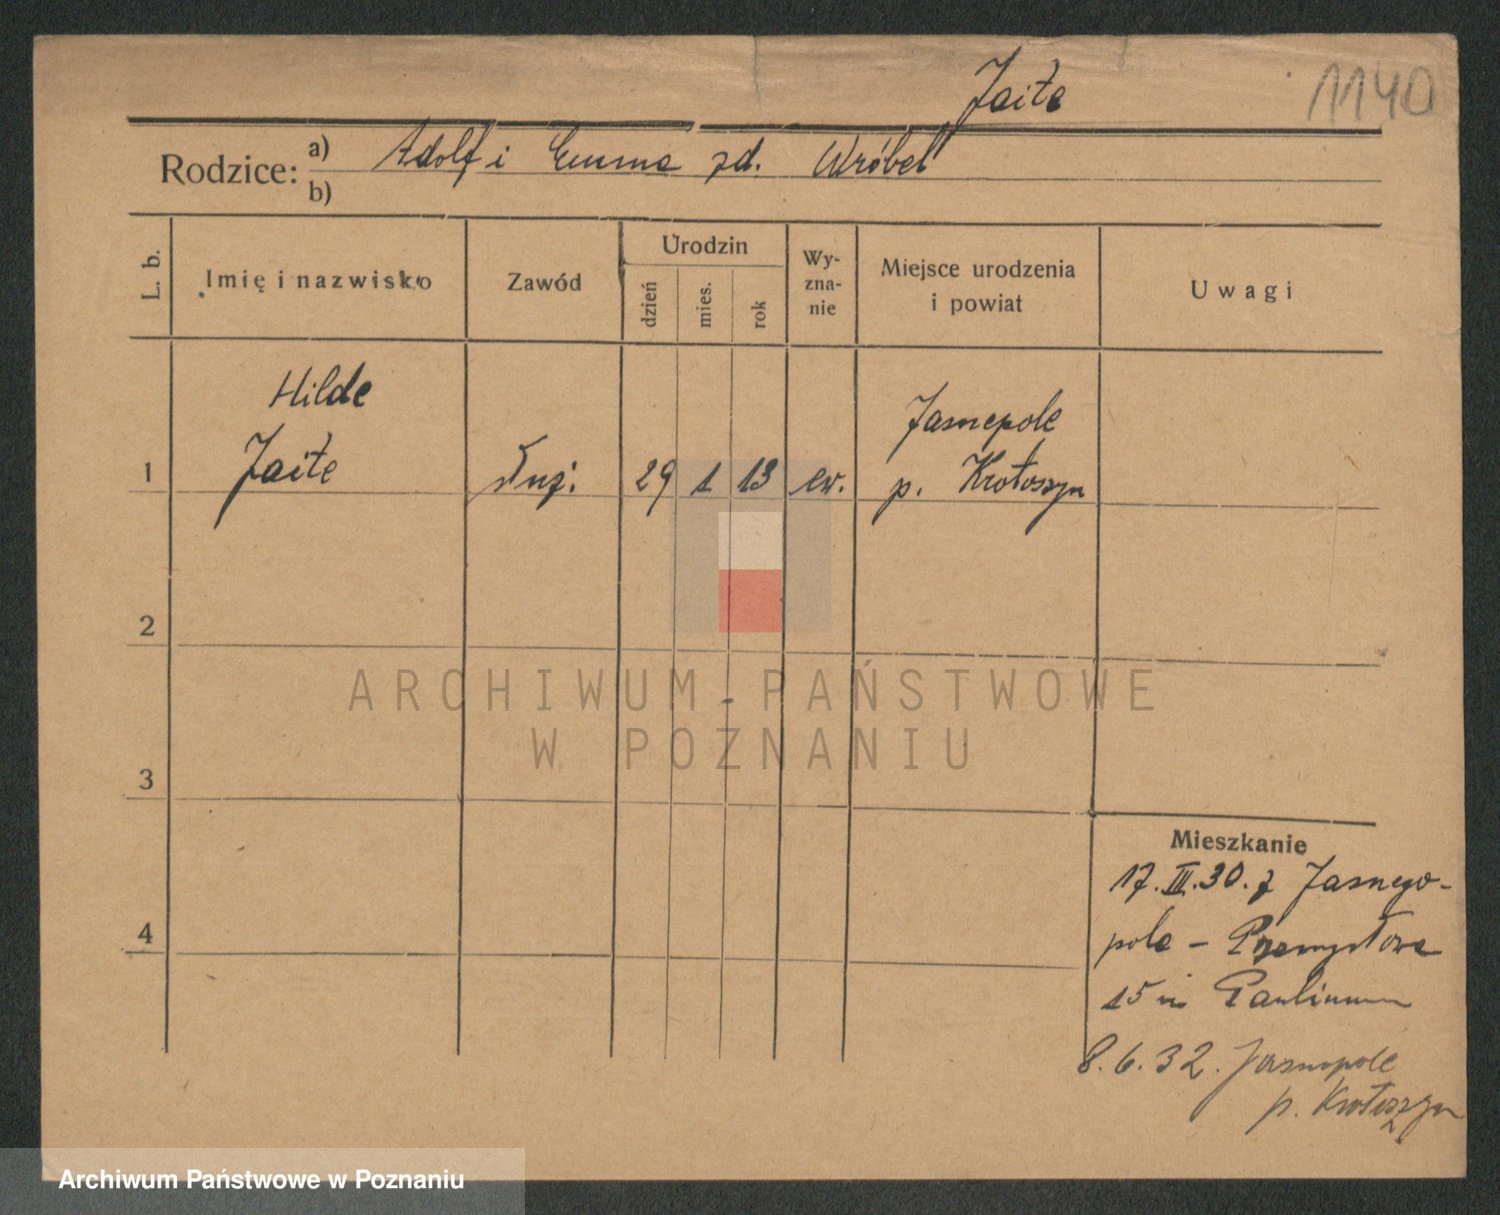 Jaite
1140
Rodzice: a) Adolf i Emma zd. Wróbel
b)
L. b.
Imię i nazwisko
Zawód
Urodzin
dzień
mies.
rok
Wy-
zna-
nie
Miejsce urodzenia
i powiat
Uwagi
Hilde
Jasnepole
1 Jaite służ. 29 1 13 ew. p. Krotoszyn
2
ARCHIWUM PAŃSTWOWE
W POZNANIU
3
Mieszkanie
17.III.30. z Jasnego-
4
pole - Przemysłowa
15 m Paulinum
8.6.32. Jasnopole
p. Krotoszyn
Archiwum Państwowe w Poznaniu